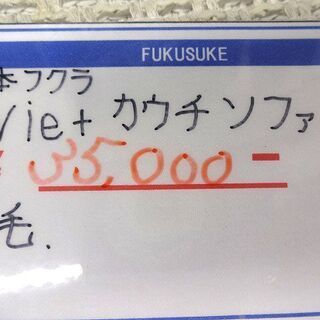 FUKUSUKE
本フクラ
Vie+ カウチソファ
35,000-
毛.